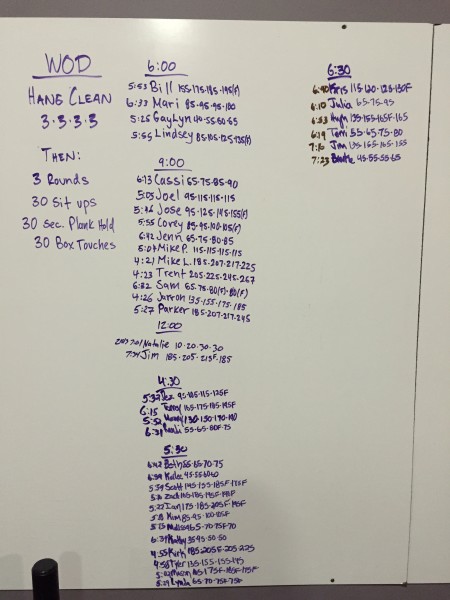 WOD
HANG CLEAN
3.3.3.3
THEN:
3 Rounds
30 Sit ups
30 Sec. Plank Hold
30 Box Touches
6:00
5:53 Bill 155-175-185-195(F)
6:33 Mari 85-95-95-100
5:25 GayLyn 40-55-60-65
5:55 Lindsey 85-105-125-135(F)
9:00
6:13 Cassi 65-75-85-90
5:05 Joel 95-115-115-115
5:46 Jose 95-125-145-155(F)
5:55 Corey 85-95-100-105(F)
6:42 Jenn 65-75-80-85
6:04 Mike P. 115-115-115-115
4:21 Mike L. 185-207-217-225
4:23 Trent 205-225-245-267
6:32 Sam 65-75-80(F)-80(F)
4:26 Jarron 135-155-175-185
5:27 Parker 185-207-217-245
12:00
Natalie 10-20-30-30
7:34 Jim 185-205-215F-185
4:30
5:32 95-105-115-125F
6:15 165-175-185-195F
5:52 130-150-170-190
6:31 55-65-80F-75
5:30
6:42 Beth 55-65-70-75
6:59 45-55-60-60
5:39 Scott 145-155-185F-175F
Zach 165-185-195F-195F
5:27 Ian 175-185-205F-195F
Kim 85-95-100-105F
5:13 65-70-75F-70
6:39 Kathy 35-45-50-50
4:55 Kirk 185-205F-205-225
4:58 Tyler 135-155-155-175
Mason
5:29 Lynda 65-70-75F-75F
6:30
6:40 Kris 115-120-125-130F
6:10 Julia 65-75-95
6:53 Hugh 135-155-165F-165
6:19 Terri 55-65-75-80
7:10 Jim 135-165-165-155
7:23 45-55-55-65